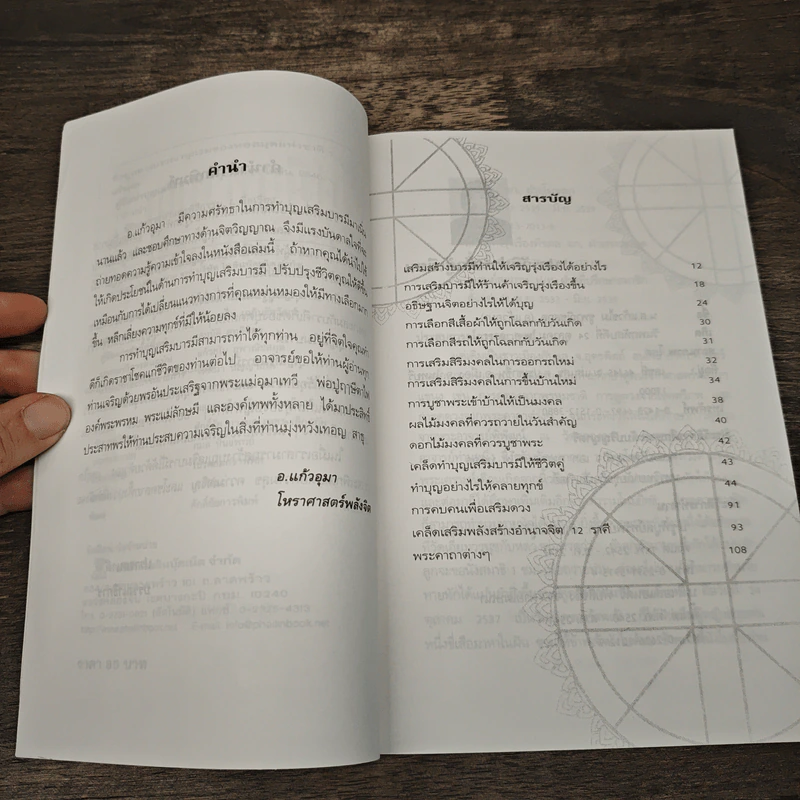 คำนำ
อ.แก้วอุมา มีความศรัทธาในการทำบุญเสริมบารมีมาเป็น
นานแล้ว และชอบศึกษาทางด้านจิตวิญญาณ จึงมีแรงบันดาลใจที่จะ
ถ่ายทอดความรู้ความเข้าใจลงในหนังสือเล่มนี้ ถ้าหากคุณได้นำไปใช้
ให้เกิดประโยชน์ในด้านการทำบุญเสริมบารมี ปรับปรุงชีวิตคุณให้ดีขึ้น
เหมือนกับการได้เปลี่ยนแนวทางการที่คุณหม่นหมองให้มีทางเลือกมาก
ขึ้น หลีกเลี่ยงความทุกข์ที่มีให้น้อยลง
การทำบุญเสริมบารมีสามารถทำได้ทุกท่าน อยู่ที่จิตใจคุณ
ดีก็เกิดราชาโชคแก่ชีวิตของท่านต่อไป อาจารย์ขอให้ท่านผู้อ่านทุก
ท่านเจริญด้วยพรอันประเสริฐจากพระแม่อุมาเทวี พ่อปู่ฤาษีตาไฟ
องค์พระพรหม พระแม่ลักษมี และองค์เทพทั้งหลาย ได้มาประสิทธิ์
ประสาทพรให้ท่านประสบความเจริญในสิ่งที่ท่านมุ่งหวังเทอญ สาธุ
อ.แก้วอุมา
โหราศาสตร์พลังจิต
สารบัญ
เสริมสร้างบารมีท่านให้เจริญรุ่งเรืองได้อย่างไร 12
การเสริมบารมีให้ร้านค้าเจริญรุ่งเรืองขึ้น 18
อธิษฐานจิตอย่างไรให้ได้บุญ 24
การเลือกสีเสื้อผ้าให้ถูกโฉลกกับวันเกิด 30
การเลือกสีรถให้ถูกโฉลกกับวันเกิด 31
การเสริมสิริมงคลในการออกรถใหม่ 32
การเสริมสิริมงคลในการขึ้นบ้านใหม่ 34
การบูชาพระเข้าบ้านให้เป็นมงคล 38
ผลไม้มงคลที่ควรถวายในวันสำคัญ 40
ดอกไม้มงคลที่ควรบูชาพระ 42
เคล็ดทำบุญเสริมบารมีให้ชีวิตคู่ 43
ทำบุญอย่างไรให้คลายทุกข์ 44
การคบคนเพื่อเสริมดวง 91
เคล็ดเสริมพลังสร้างอำนาจจิต 12 ราศี 93
พระคาถาต่างๆ 108